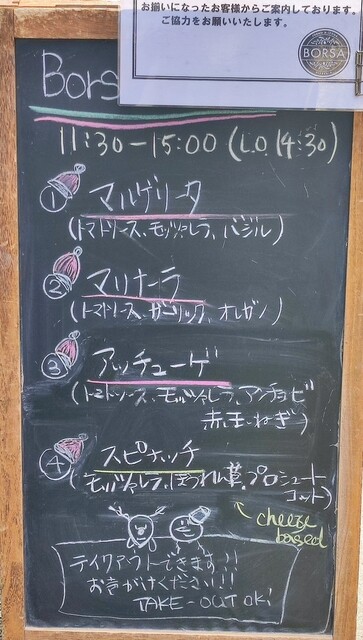 お揃いになったお客様からご案内しております。
ご協力をお願いいたします。
BORSA
Bors
11:30-15:00 (L.O 14:30)
① マルゲリータ
(トマトソース、モッツァレラ、バジル)
② マリナーラ
(トマトソース、ガーリック、オレガノ)
③ アッチューゲ
(トマトソース、モッツァレラ、アンチョビ
赤玉ねぎ)
④ スピナッチ
(モッツァレラ、ほうれん草、プロシュート
コット)
cheese
based
テイクアウトできます!!
お声がけください!!!
TAKE-OUT OK!